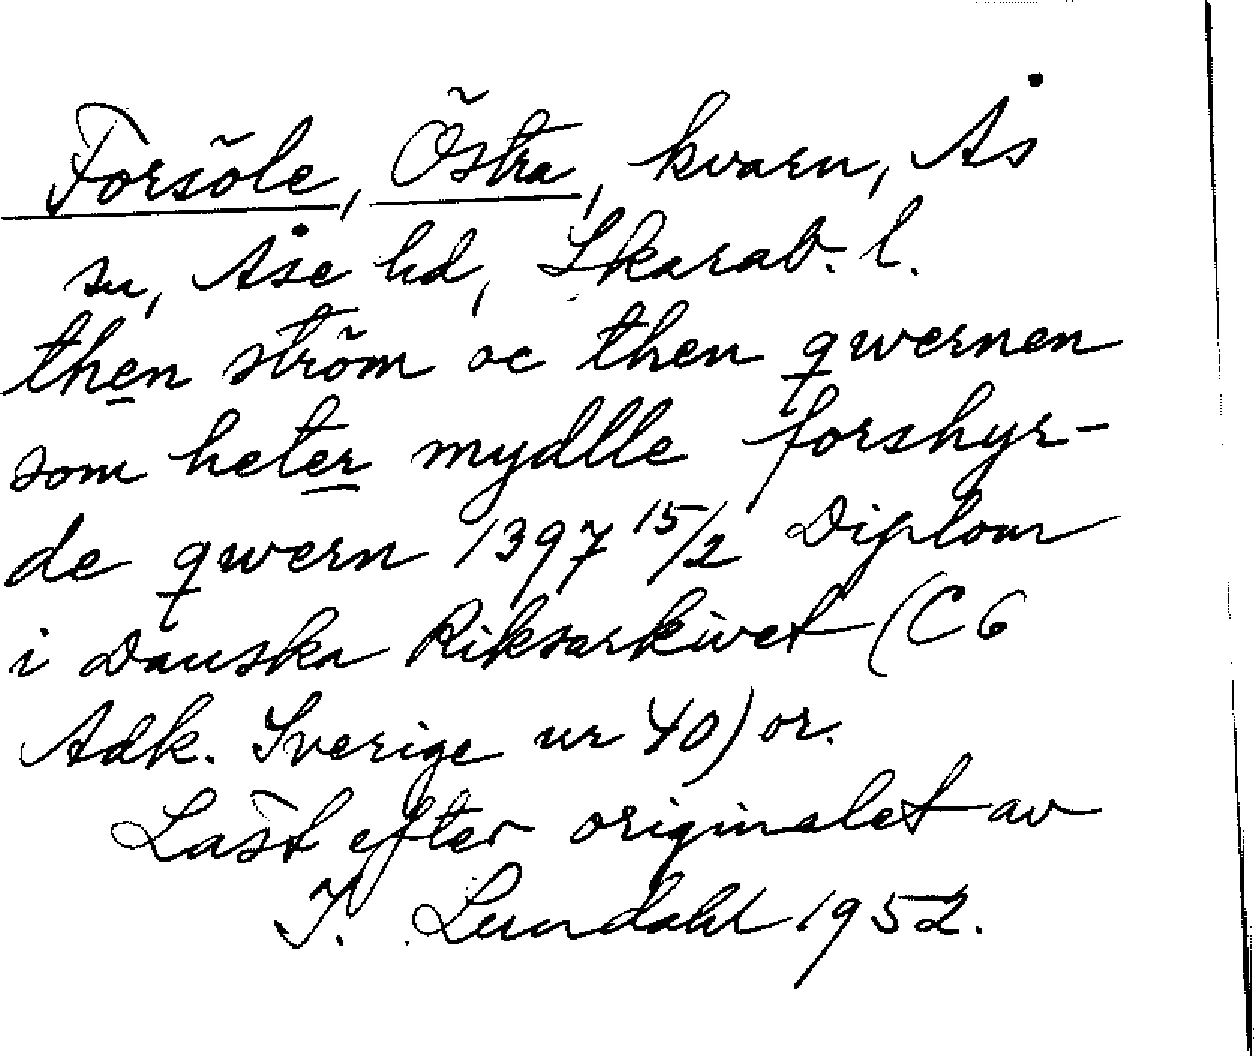 Forsöle, Östra, kvarn, Ås
sn, Åse hd, Skarab. l.
then ström oc then qwernen
som heter mydlle forshyr-
de qwern 1397 15/2 Diplom
i Danska Riksarkivet (C6
Adk. Sverige nr 40) or.
Läst efter originalet av
I. Lundahl 1952.